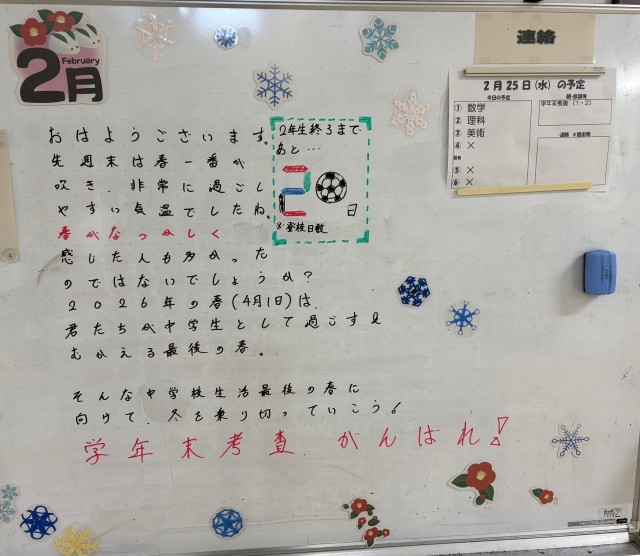 February
2月
連絡
2月25日(水)の予定
今日の予定
朝・放課後
①数学
学年末考査(1・2)
②理科
③美術
④×
⑤×
⑥×
2年生終るまで
あと…
20日
※登校日数
おはようございます。
先週末は春一番が
吹き、非常に過ごし
やすい気温でしたね。
春がなつかしく
感じた人も多かった
のではないでしょうか?
2026年の春(4月1日)は、
君たちが中学生として過ごすと
むかえる最後の春。
そんな中学校生活最後の春に
向けて、冬を乗り切っていこう!
学年末考査、がんばれ!